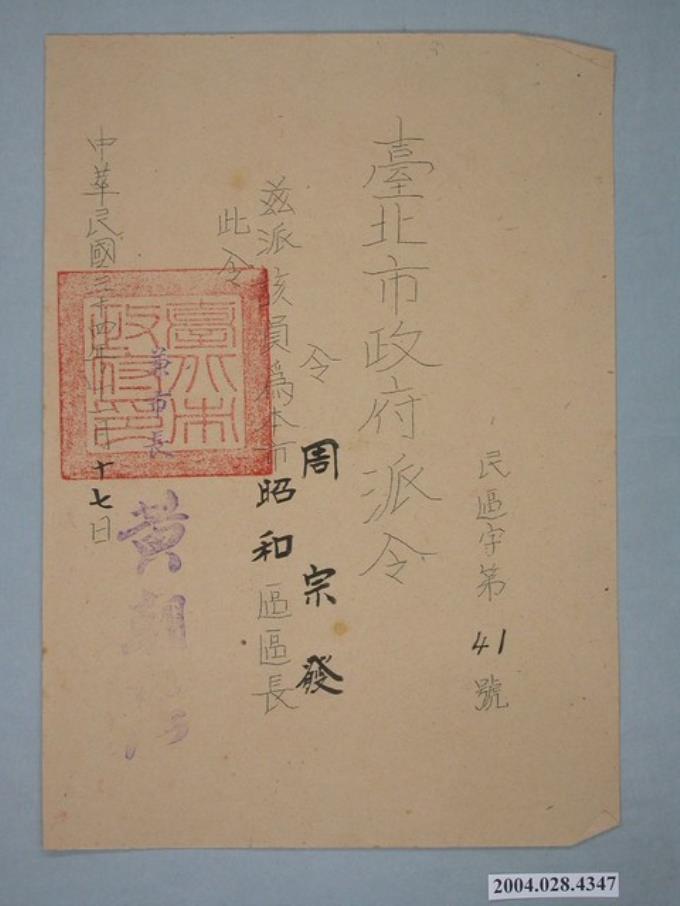 民區字第41號
臺北市政府派令
令 周宗發
茲派該員爲本市昭和區區長
此令
兼市長 黃朝
中華民國三十四年十二月十七日
臺北市政府印
2004.028.4347